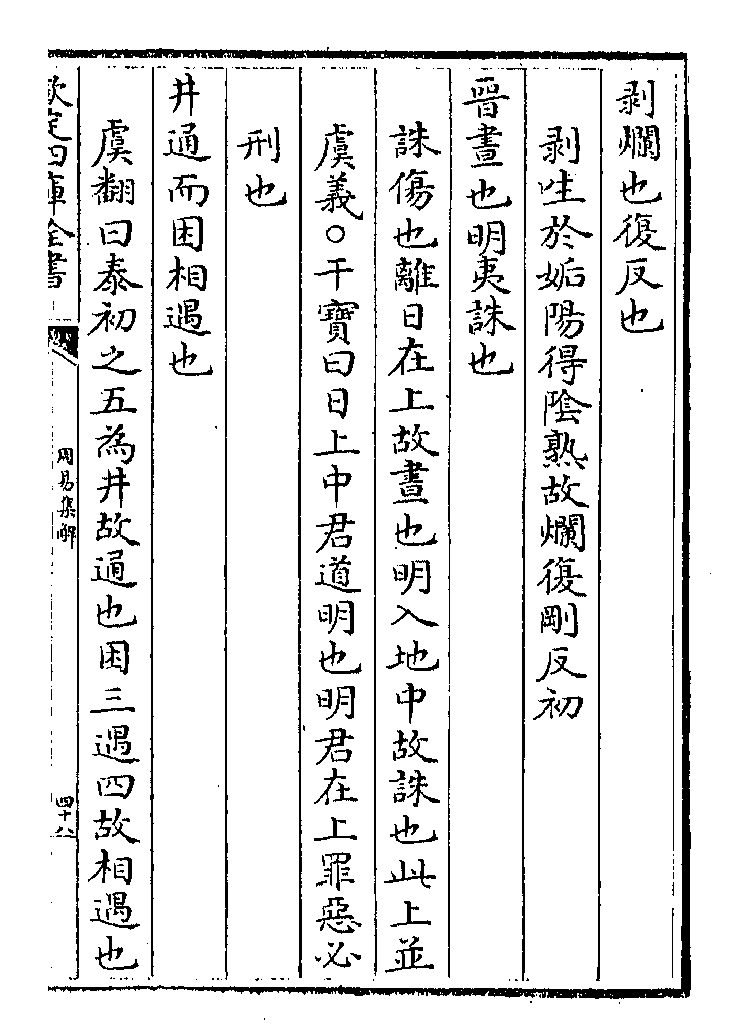 剥爛也復反也
剥生於姤陽得陰熟故爛復剛反初
晉晝也明夷誅也
誅傷也離日在上故晝也明入地中故誅也此上並
虞義○干寶曰日上中君道明也明君在上罪惡必
刑也
井通而困相遇也
虞翻曰泰初之五為井故通也困三遇四故相遇也
欽定四庫全書
周易集解
四十八